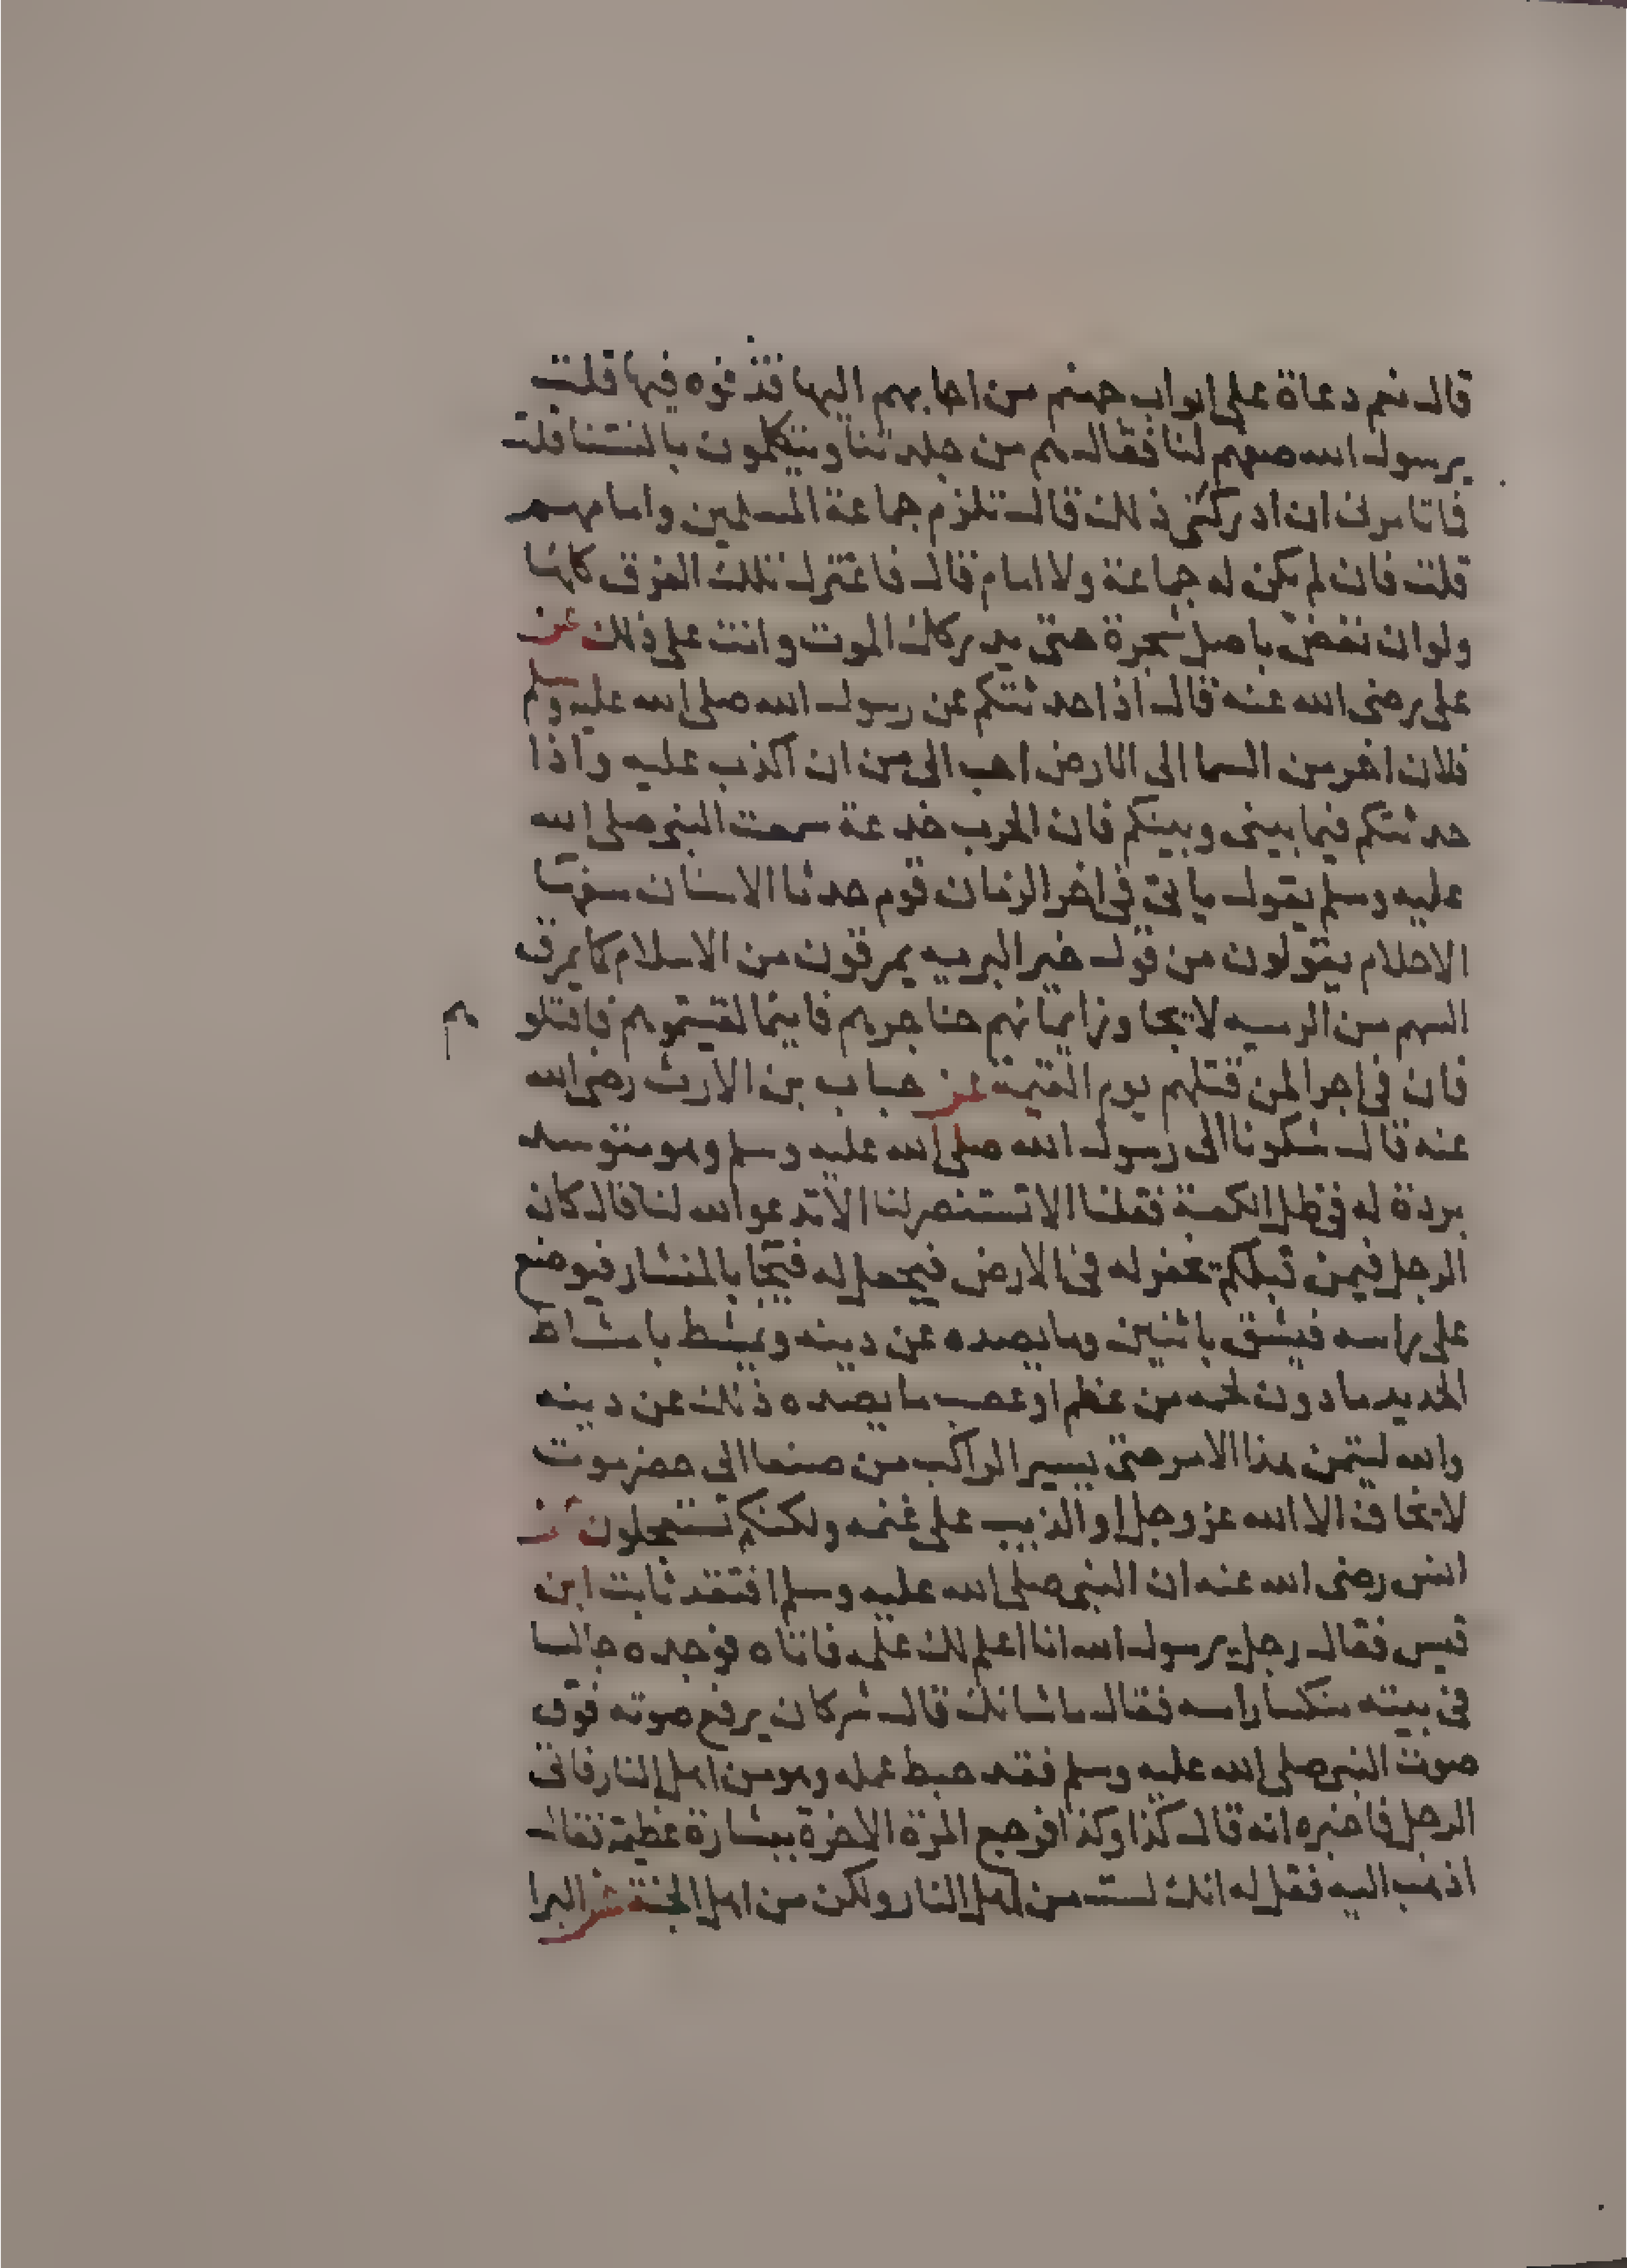 قال نعم دعاة على ابواب جهنم من اجابهم اليها قذفوه فيها قلت
يرسول الله صفهم لنا فقال هم من جلدتنا ويتكلمون بالسنتنا قلت
فما تامرني ان ادركني ذلك قال تلزم جماعة المسلمين وامامهم
قلت فان لم يكن لهم جماعة ولا امام قال فاعتزل تلك الفرق كلها
ولو ان تعض باصل شجرة حتى يدركك الموت وانت على ذلك عن
على رضى الله عنه قال اذا حدثتكم عن رسول الله صلى الله عليه وسلم
فلان اخر من السما الى الارض احب الى من ان اكذب عليه واذا
حدثتكم فيما بينى وبينكم فان الحرب خدعة سمعت النبى صلى الله
عليه وسلم يقول ياتى فى اخر الزمان قوم حدثا الاسنان سفها
الاحلام يقولون من قول خير البريه يمرقون من الاسلام كما يمرق
السهم من الرميه لا يجاوز ايمانهم حناجرهم فاينما لقيتموهم فاقتلوهم
فان فى اجرا لمن قتلهم يوم القيمة عن خباب بن الارث رضى الله
عنه قال شكونا الى رسول الله صلى الله عليه وسلم وهو متوسد
بردة له فى ظل الكعبة فقلنا الا تستنصر لنا الا تدعو الله لنا قال كان
الرجل فيمن قبلكم يحفر له فى الارض فيجعل له فيجا بالمنشار فيوضع
على راسه فيشق باثنين وما يصده عن دينه ويمشط بامشاط
الحديد ما دون لحمه من عظم او عصب ما يصده ذلك عن دينه
والله ليتمن هذا الامر حتى يسير الراكب من صنعا الى حضرموت
لا يخاف الا الله عز وجل او الذيب على غنمه ولكنكم تستعجلون عن
انس رضى الله عنه ان النبى صلى الله عليه وسلم افتقد ثابت ابن
قيس فقال رجل يرسول الله انا اعلم لك علمه فاتاه فوجده جالسا
فى بيته منكسا راسه فقال ما شانك قال شر كان يرفع صوته فوق
صوت النبى صلى الله عليه وسلم فقد حبط عمله وهو من اهل النار فاتى
الرجل فاخبره انه قال كذا وكذا فرجع المرة الاخرة ببشارة عظيمة فقال
اذهب اليه فقل له انك لست من اهل النار ولكن من اهل الجنة عن البرا